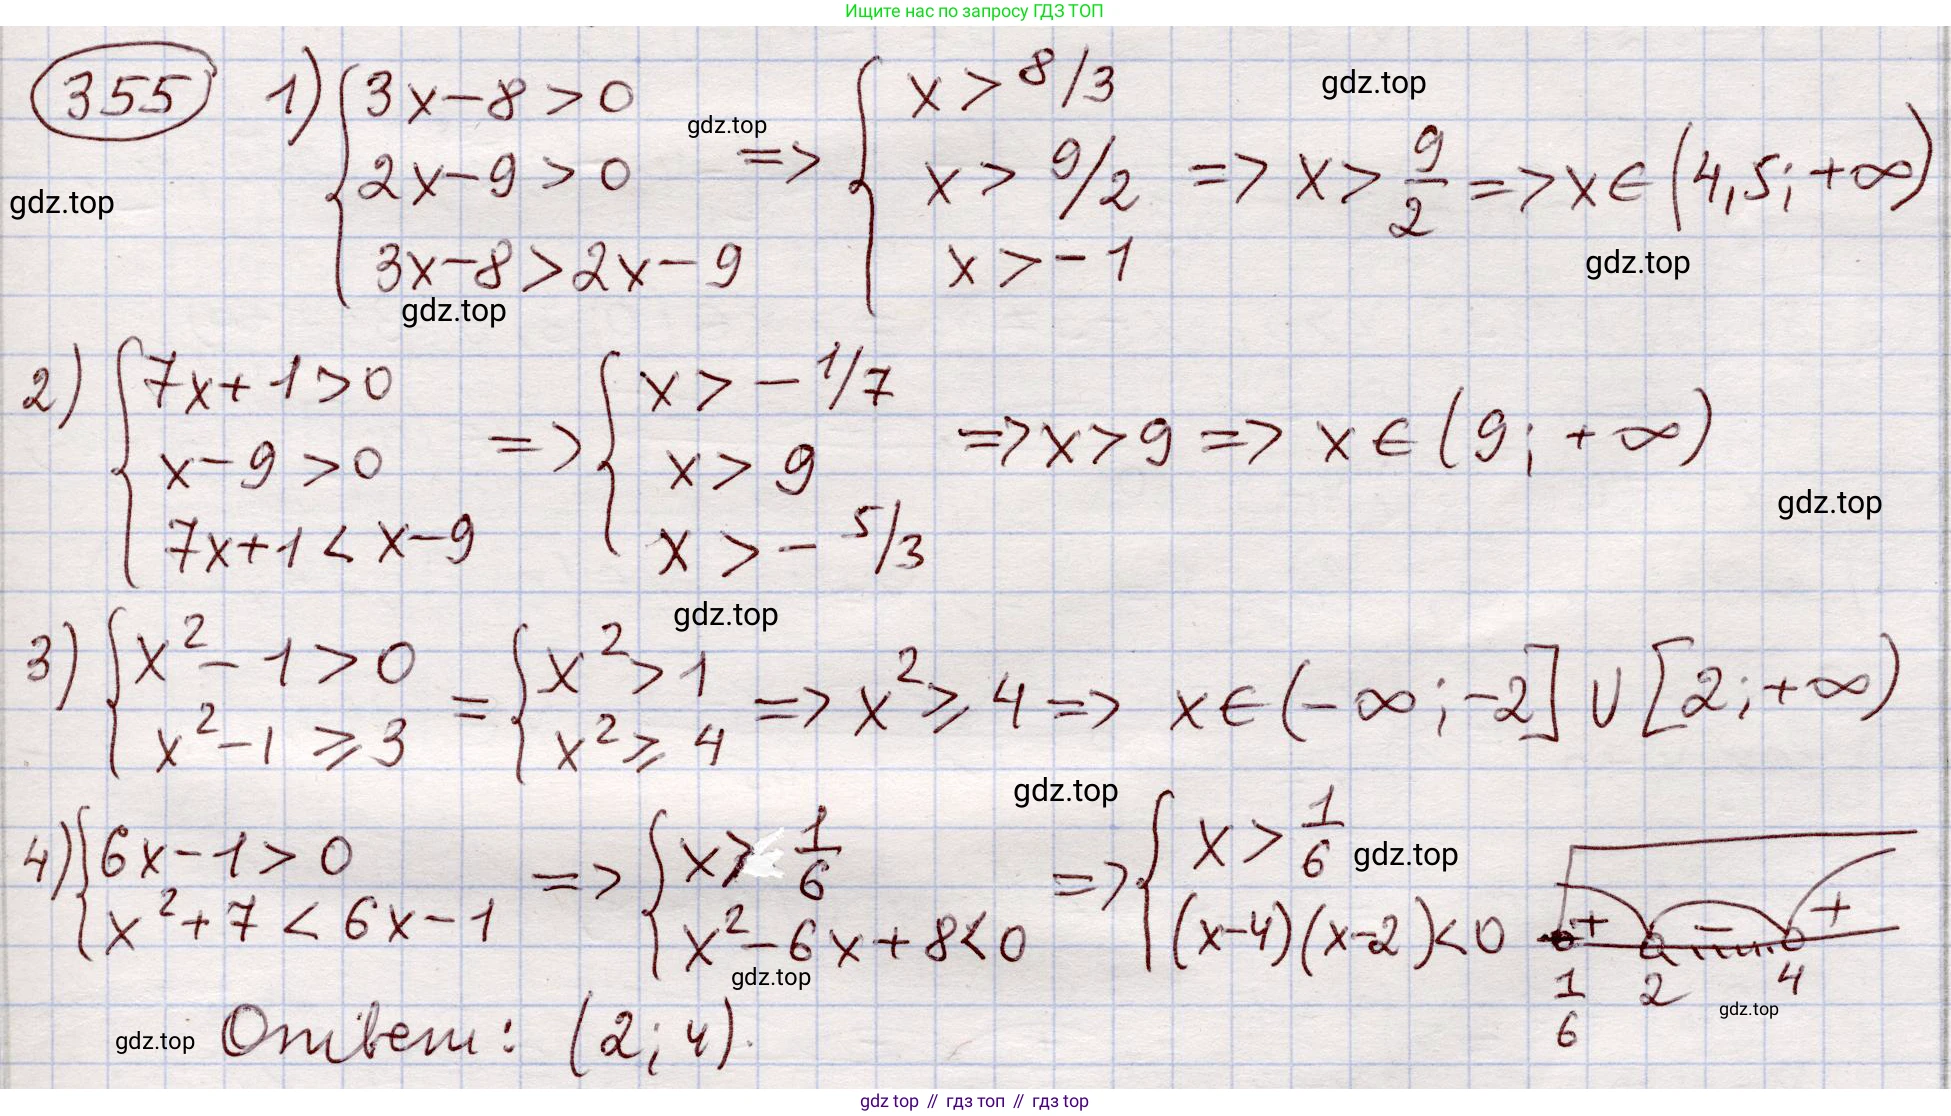 Ищите нас по запросу ГДЗ ТОП
355 1) { 3x-8>0 ; 2x-9>0 ; 3x-8>2x-9 => { x>8/3 ; x>9/2 ; x>-1 => x>9/2 => x∈(4,5;+∞)
gdz.top
gdz.top
gdz.top
gdz.top
gdz.top
2) { 7x+1>0 ; x-9>0 ; 7x+1<x-9 => { x>-1/7 ; x>9 ; x>-5/3 => x>9 => x∈(9;+∞)
gdz.top
gdz.top
3) { x²-1>0 ; x²-1⩾3 = { x²>1 ; x²⩾4 => x²⩾4 => x∈(-∞;-2]∪[2;+∞)
gdz.top
4) { 6x-1>0 ; x²+7<6x-1 => { x>1/6 ; x²-6x+8<0 => { x>1/6 ; (x-4)(x-2)<0 + - + 1/6 2 4
gdz.top
gdz.top
gdz.top
gdz.top
Ответ: (2;4).
gdz top // гдз топ // гдз top